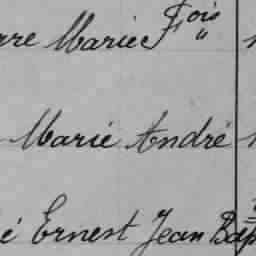 rre Marie Fois
Marie André
é Ernest Jean Bap